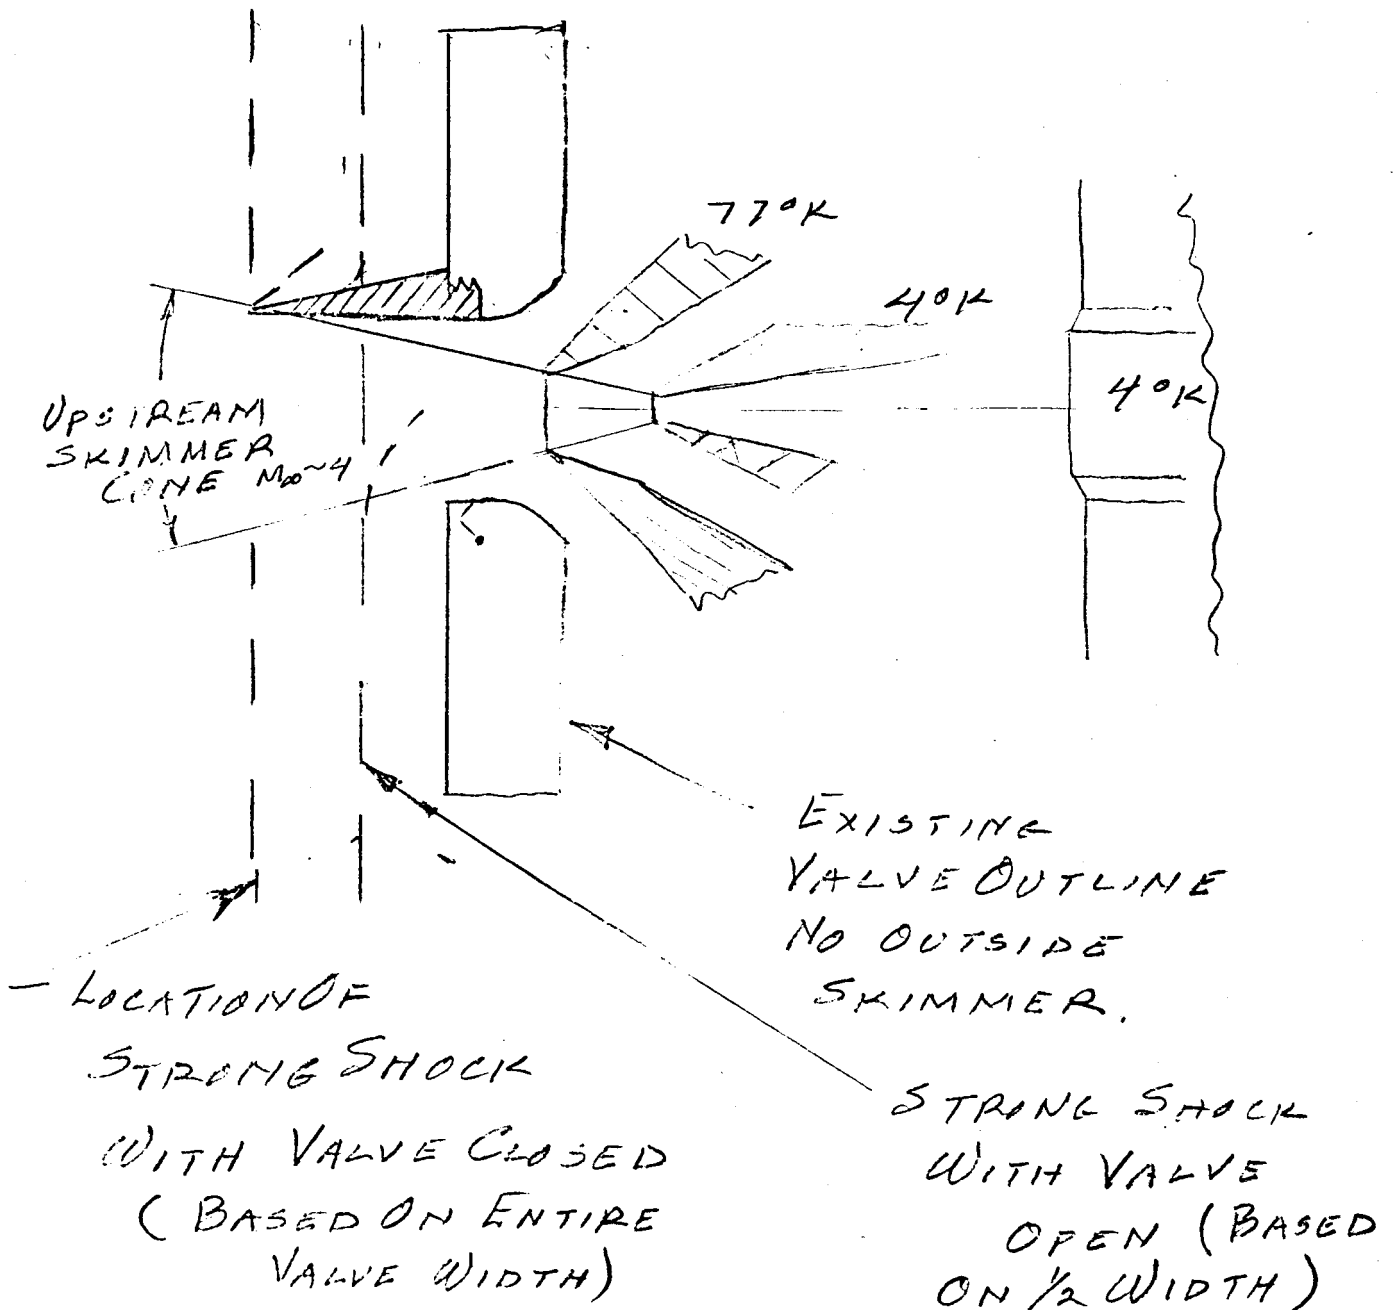 77°K
4°K
4°K
UPSTREAM
SKIMMER
CONE M∞~4
EXISTING
VALVE OUTLINE
NO OUTSIDE
SKIMMER.
- LOCATION OF
STRONG SHOCK
WITH VALVE CLOSED
(BASED ON ENTIRE
VALVE WIDTH)
STRONG SHOCK
WITH VALVE
OPEN (BASED
ON 1/2 WIDTH)